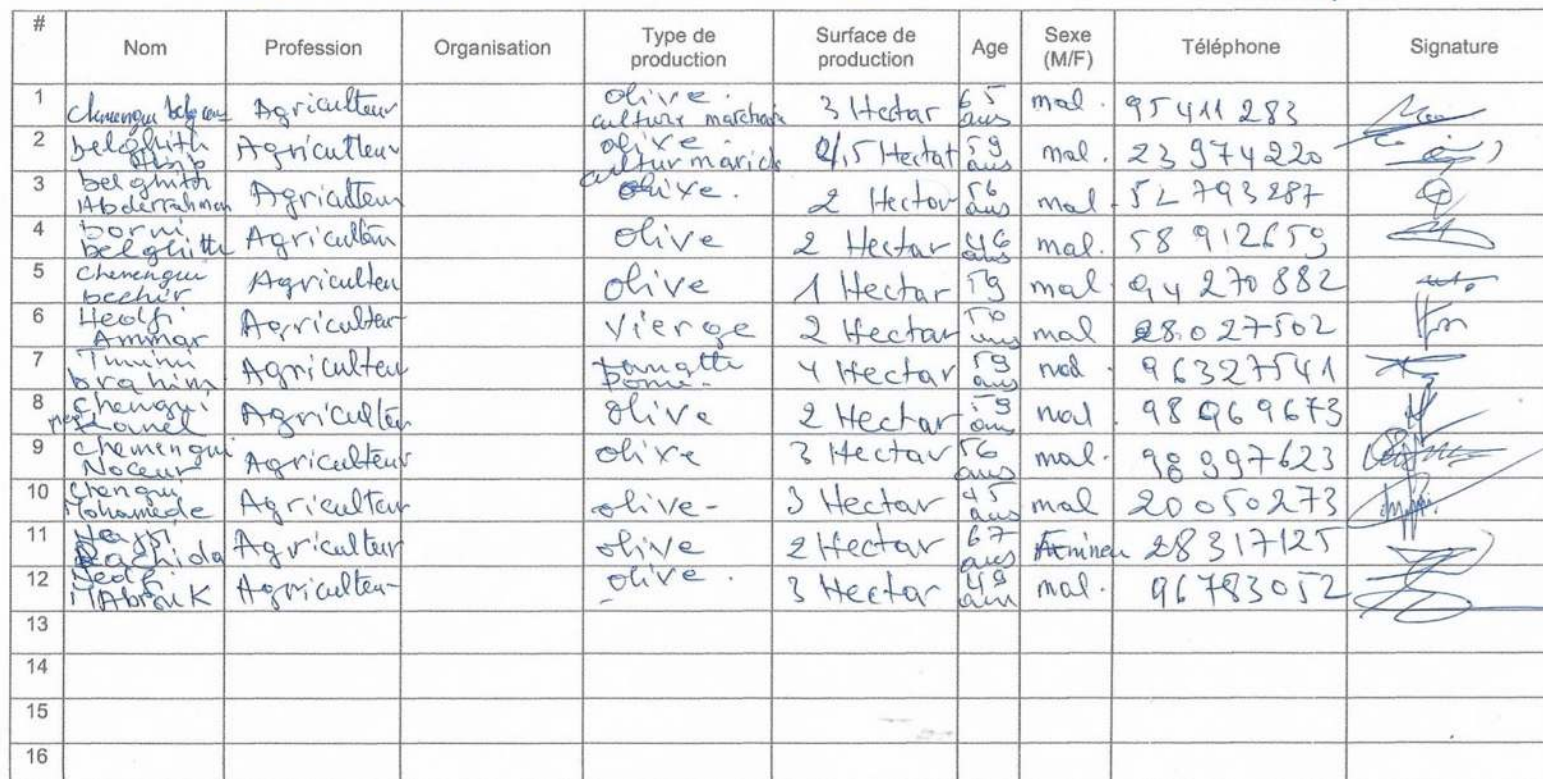 # Nom Profession Organisation Type de production Surface de production Age Sexe (M/F) Téléphone Signature
1 Agriculteur olive. culture 3 Hectar 65 ans mal. 95 411 283
2 belghith Agriculteur olive. cultur 59 ans mal. 23 974 220
3 belghith Abderrahmen Agriculteur olive. 2 Hectar 56 ans mal. 52 793 287
4 borni belghith olive 2 Hectar 46 ans mal. 58 912659
5 Chenengui bechir Agriculteu olive 1 Hectar 59 mal. 94 270 882
6 Ammar Agriculteur Vierge 2 Hectar 50 ans mal 28.027502
7 brahim Agriculteur 4 Hectar 59 ans 96327541
8 Chengui Agriculteu olive 2 Hectar ans mal. 98 969673
9 Chemengui Noceur Agriculteur olive 3 Hectar 56 ans mal. 98 997623
10 Chengui Mohamede Agriculteur olive- 3 Hectar 45 ans mal 20050273
11 Rachida Agriculteur olive 2 Hectar 67 ans 28 317125
12 MAbrouK Agriculteur olive. 3 Hectar 49 an mal. 96783052
13
14
15
16